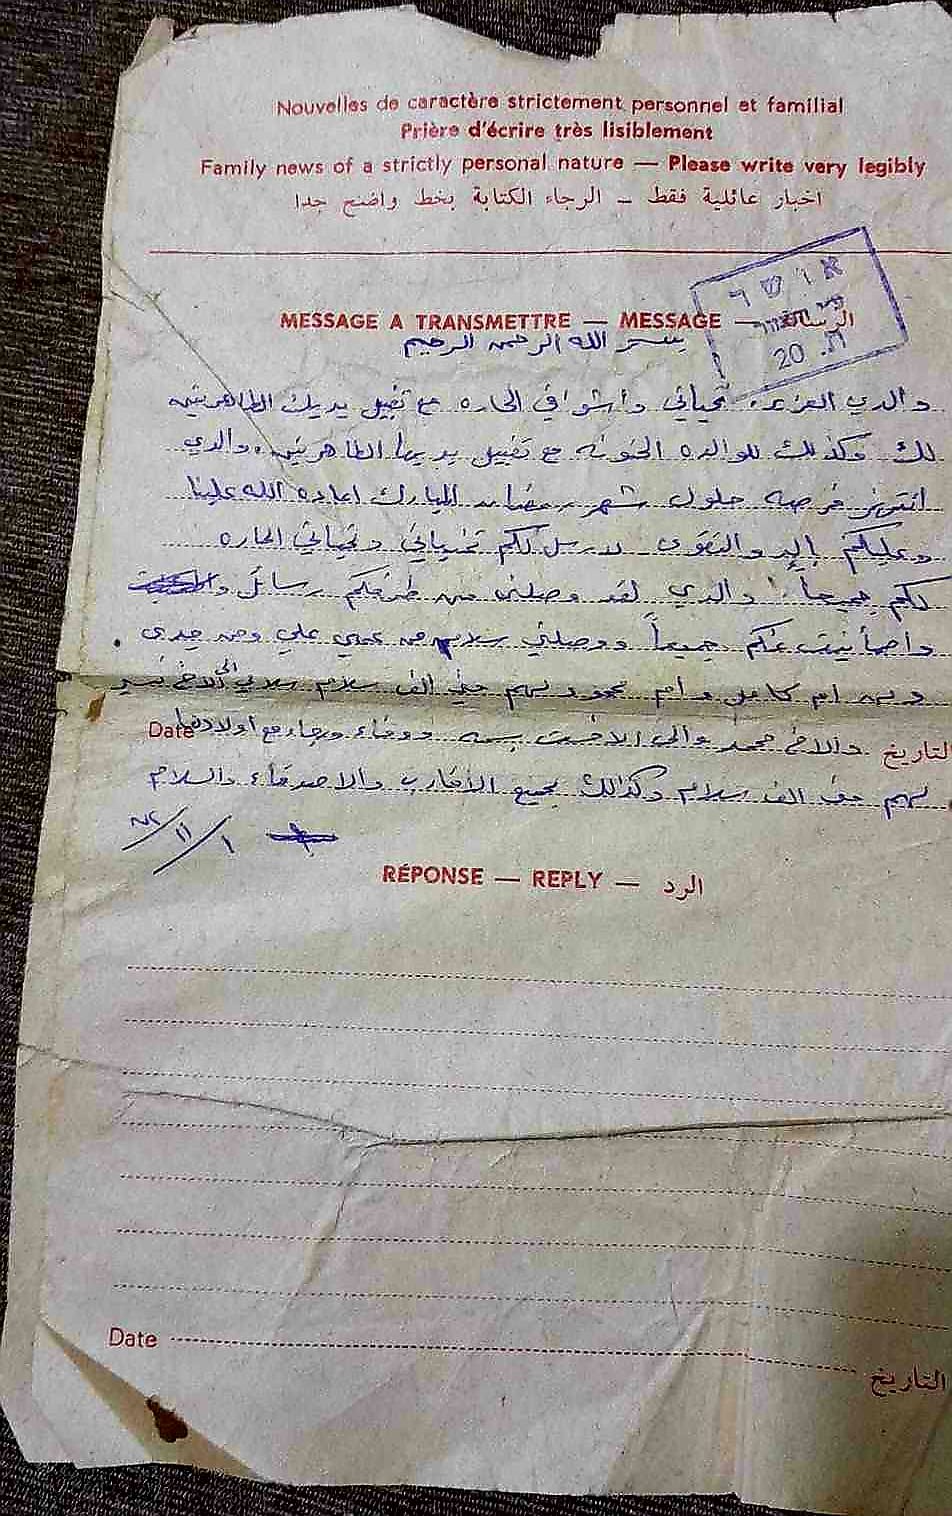 Nouvelles de caractère strictement personnel et familial
Prière d'écrire très lisiblement
Family news of a strictly personal nature — Please write very legibly
اخبار عائلية فقط - الرجاء الكتابة بخط واضح جدا
MESSAGE A TRANSMETTRE — MESSAGE — الرسالة
אושר
20
بسم الله الرحمن الرحيم
والدي العزيز. تحياتي وأشواقي الحاره مع تقبيل يديك الطاهرتين
لك وكذلك للوالده الحنونه مع تقبيل يديها الطاهرتين. والدي
انتهز فرصه حلول شهر رمضان المبارك اعاده الله علينا
وعليكم بالبر والتقوى لارسل لكم تهنياتي وتحياتي الحاره
لكم جميعاً. والدي لقد وصلني من طرفكم رسائل
واطمأنيت عنكم جميعاً ووصلني سلام من عمي علي ومن جدي.
ام كامل وام محمود لهم مني الف سلام سلامي الى الاخ
Date والاخ محمد والى الاخت بسمه ووفاء ورجاء مع اولادها لتاريخ
لهم مني الف سلام وكذلك لجميع الأقارب والاصدقاء والسلام
١/١١/
RÉPONSE — REPLY — الرد
Date التاريخ